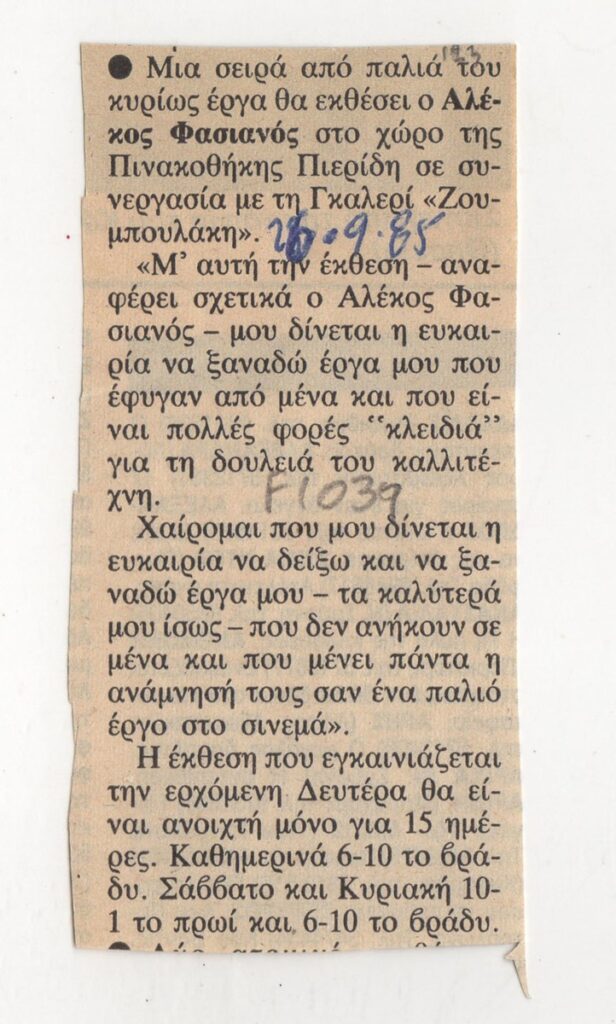 193
● Μια σειρά από παλιά του
κυρίως έργα θα εκθέσει ο Αλέ-
κος Φασιανός στο χώρο της
Πινακοθήκης Πιερίδη σε συ-
νεργασία με τη Γκαλερί «Ζου-
μπουλάκη». 26.9.85
«Μ' αυτή την έκθεση – ανα-
φέρει σχετικά ο Αλέκος Φα-
σιανός – μου δίνεται η ευκαι-
ρία να ξαναδώ έργα μου που
έφυγαν από μένα και που εί-
ναι πολλές φορές "κλειδιά"
για τη δουλειά του καλλιτέ-
χνη. F1039
Χαίρομαι που μου δίνεται η
ευκαιρία να δείξω και να ξα-
ναδώ έργα μου – τα καλύτερά
μου ίσως – που δεν ανήκουν σε
μένα και που μένει πάντα η
ανάμνησή τους σαν ένα παλιό
έργο στο σινεμά».
Η έκθεση που εγκαινιάζεται
την ερχόμενη Δευτέρα θα εί-
ναι ανοιχτή μόνο για 15 ημέ-
ρες. Καθημερινά 6-10 το βρά-
δυ. Σάββατο και Κυριακή 10-
1 το πρωί και 6-10 το βράδυ.